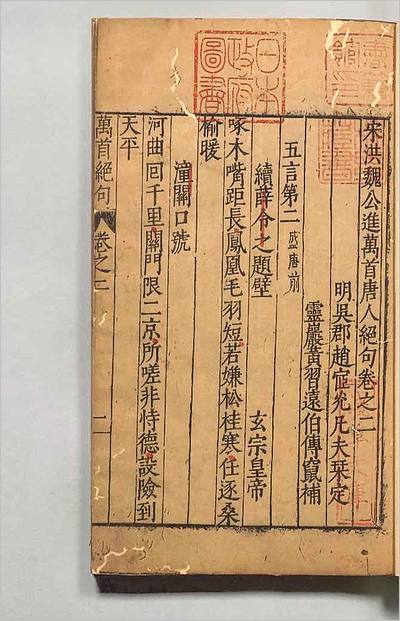 宋洪魏公進萬首唐人絕句卷之二
明吳郡趙宧光凡夫栞定
靈巖黃習遠伯傳竄補
五言第二 盛唐前
續薛令之題壁 玄宗皇帝
啄木嘴距長鳳凰毛羽短若嫌松桂寒任逐桑
榆暖
潼關口號
河曲回千里關門限二京所嗟非恃德設險到
天平
萬首絕句 卷之二 一
日本
政府
圖書